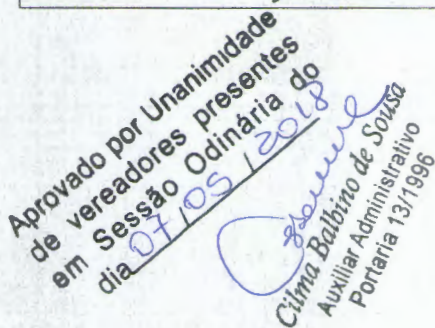 Aprovado por Unanimidade
de vereadores presentes
em Sessão Odinária do
dia 07/05/2018
Cilma Balbino de Sousa
Auxiliar Administrativo
Portaria 13/1996